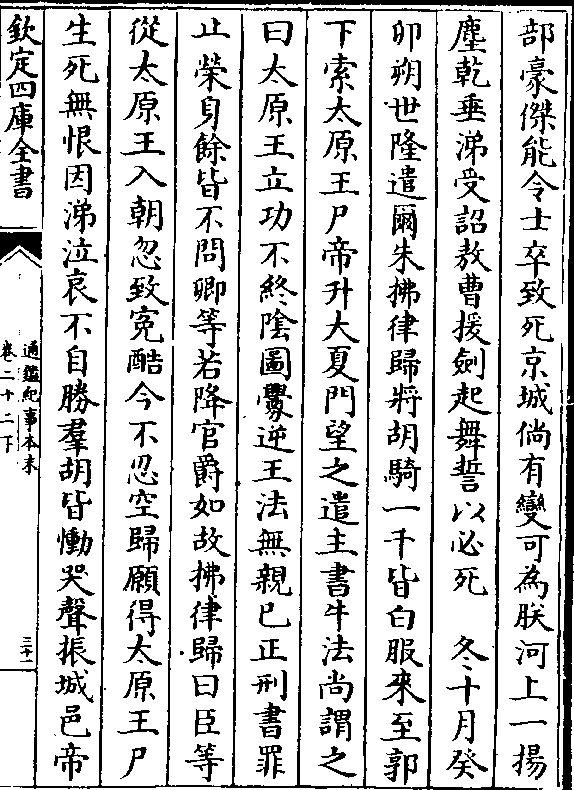 部豪傑能令士卒致死京城倘有變可為朕河上一揚
塵乾垂涕受詔敖曹援劍起舞誓以必死　冬十月癸
卯朔世隆遣爾朱拂律歸將胡騎一千皆白服來至郭
下索太原王尸帝升大夏門望之遣主書牛法尚謂之
曰太原王立功不終陰圖釁逆王法無親已正刑書罪
止榮身餘皆不問卿等若降官爵如故拂律歸曰臣等
從太原王入朝忽致寃酷今不忍空歸願得太原王尸
生死無恨因涕泣哀不自勝羣胡皆慟哭聲振城邑帝
欽定四庫全書
通鑑紀事本末
卷二十二下
三十一